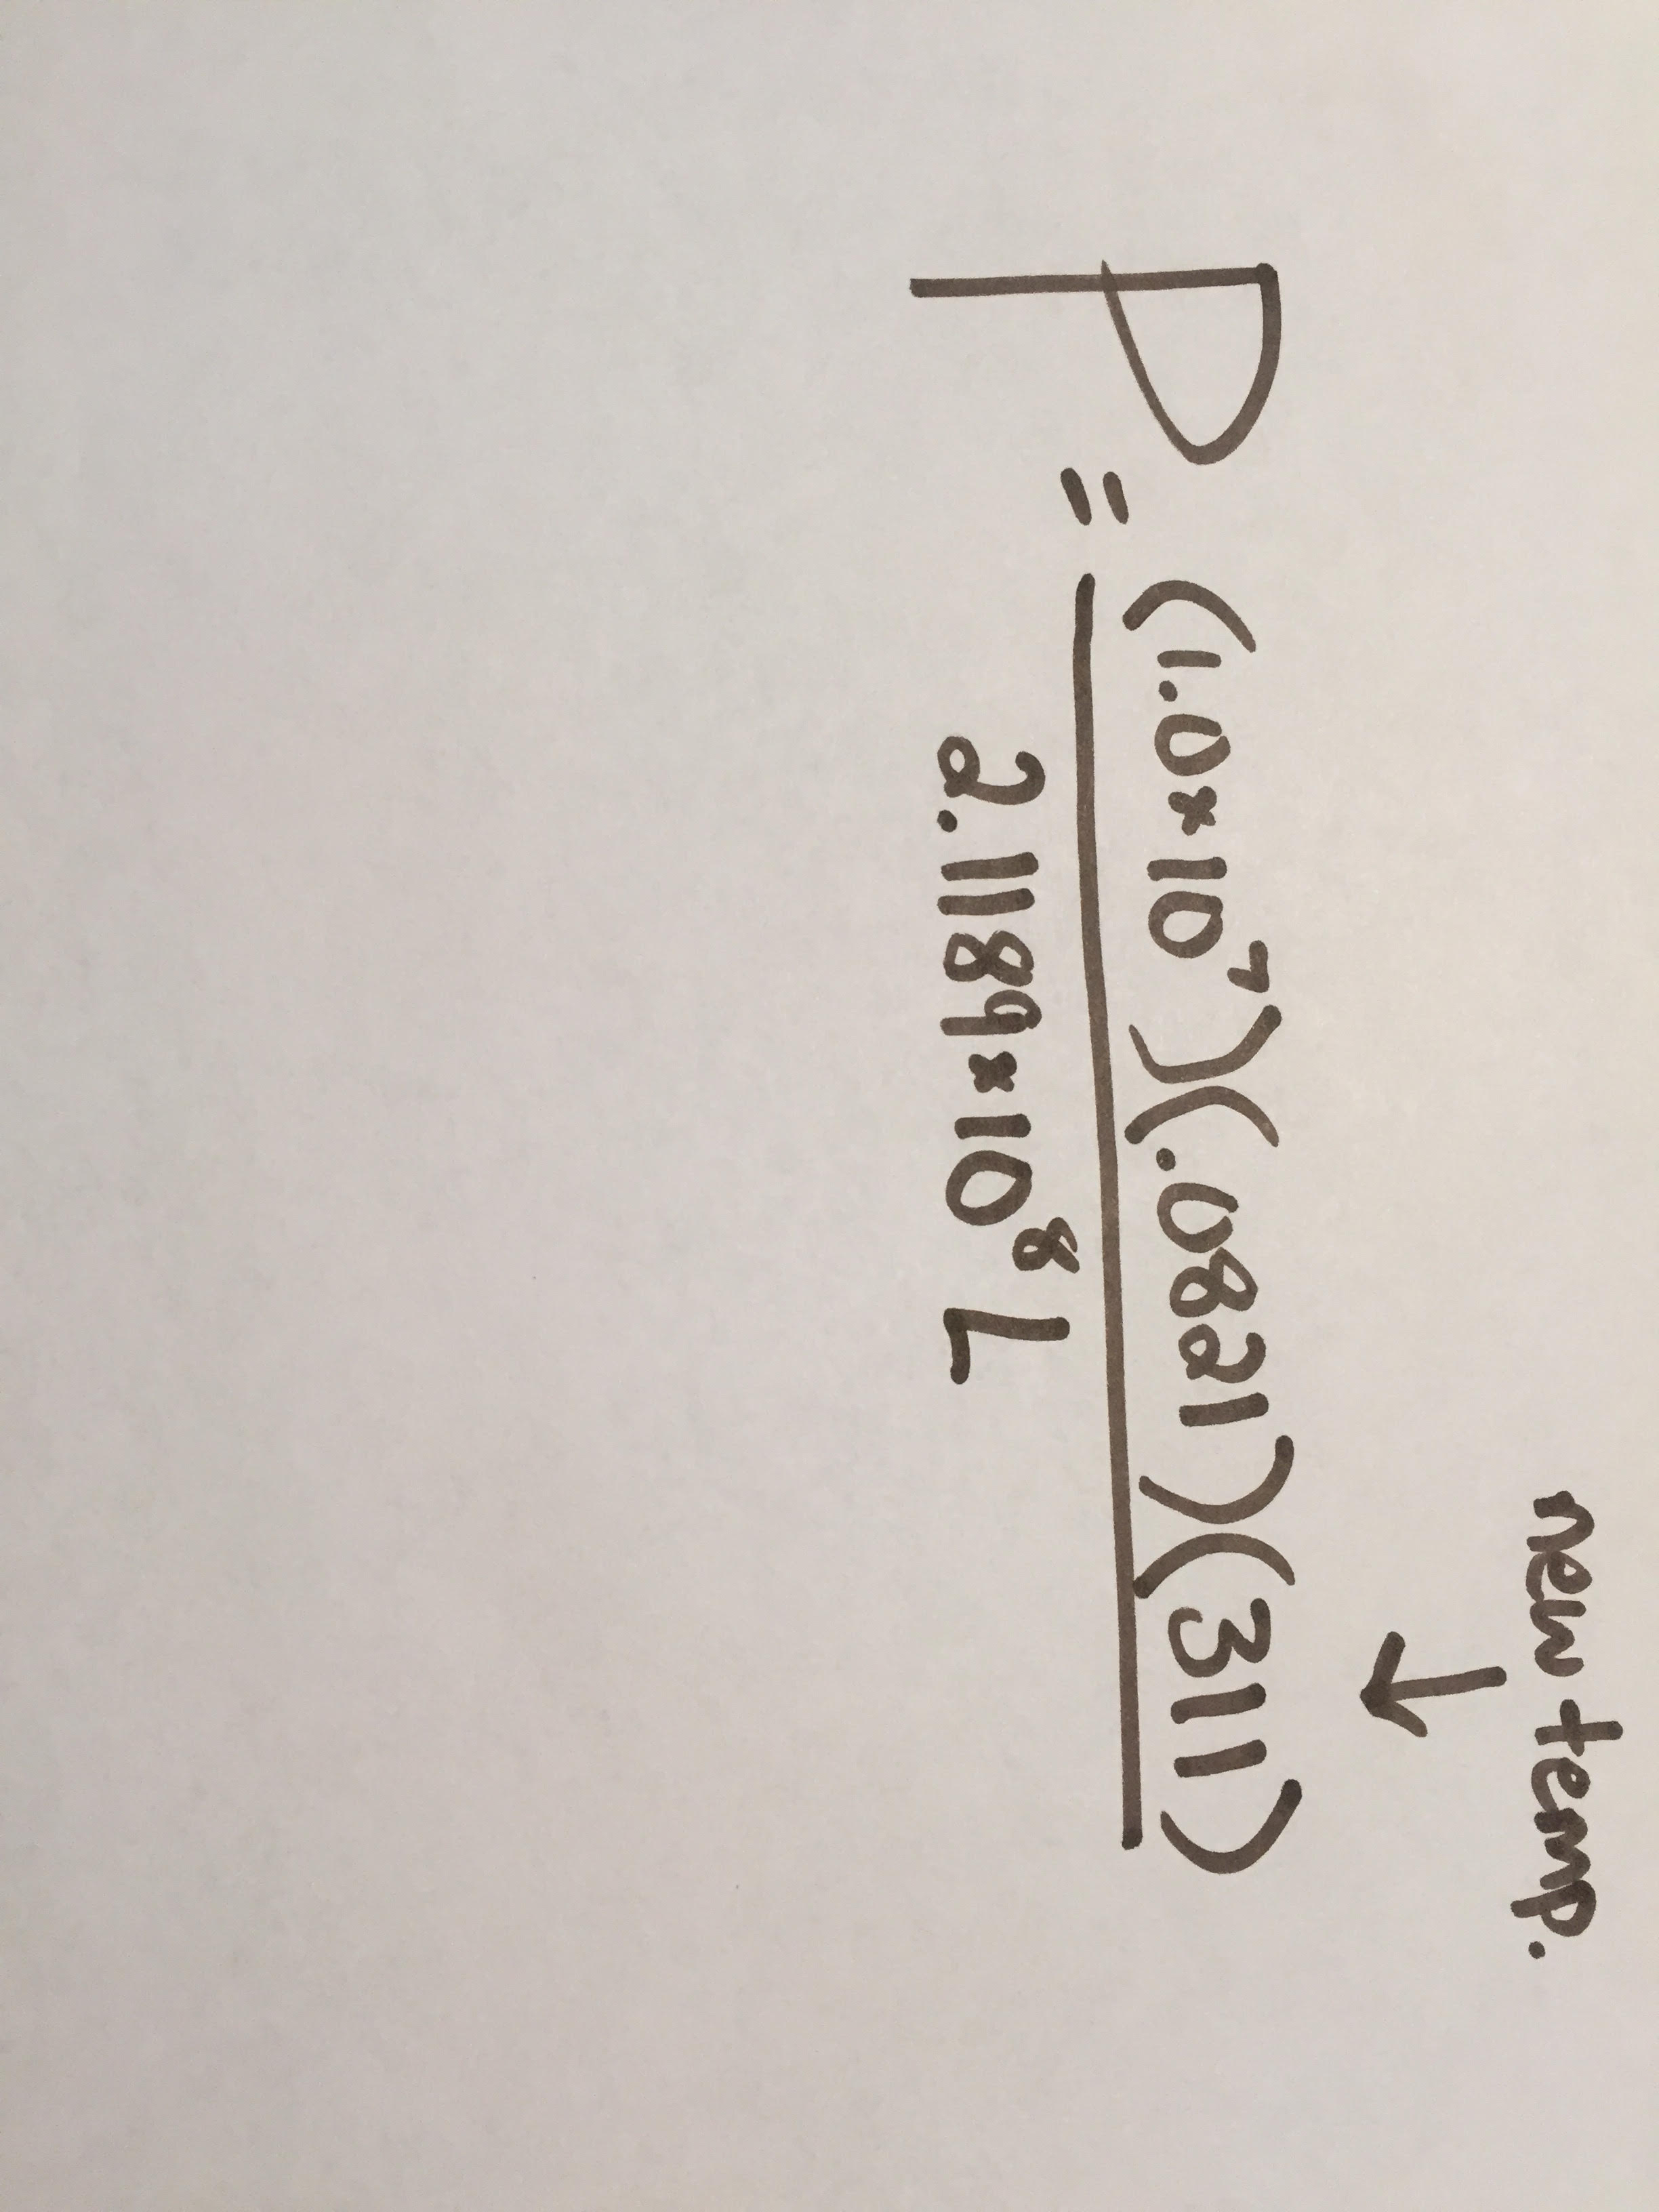 new temp.
↓
P = (1.0×10⁷)(.0821)(311)
2.1189×10⁸ L